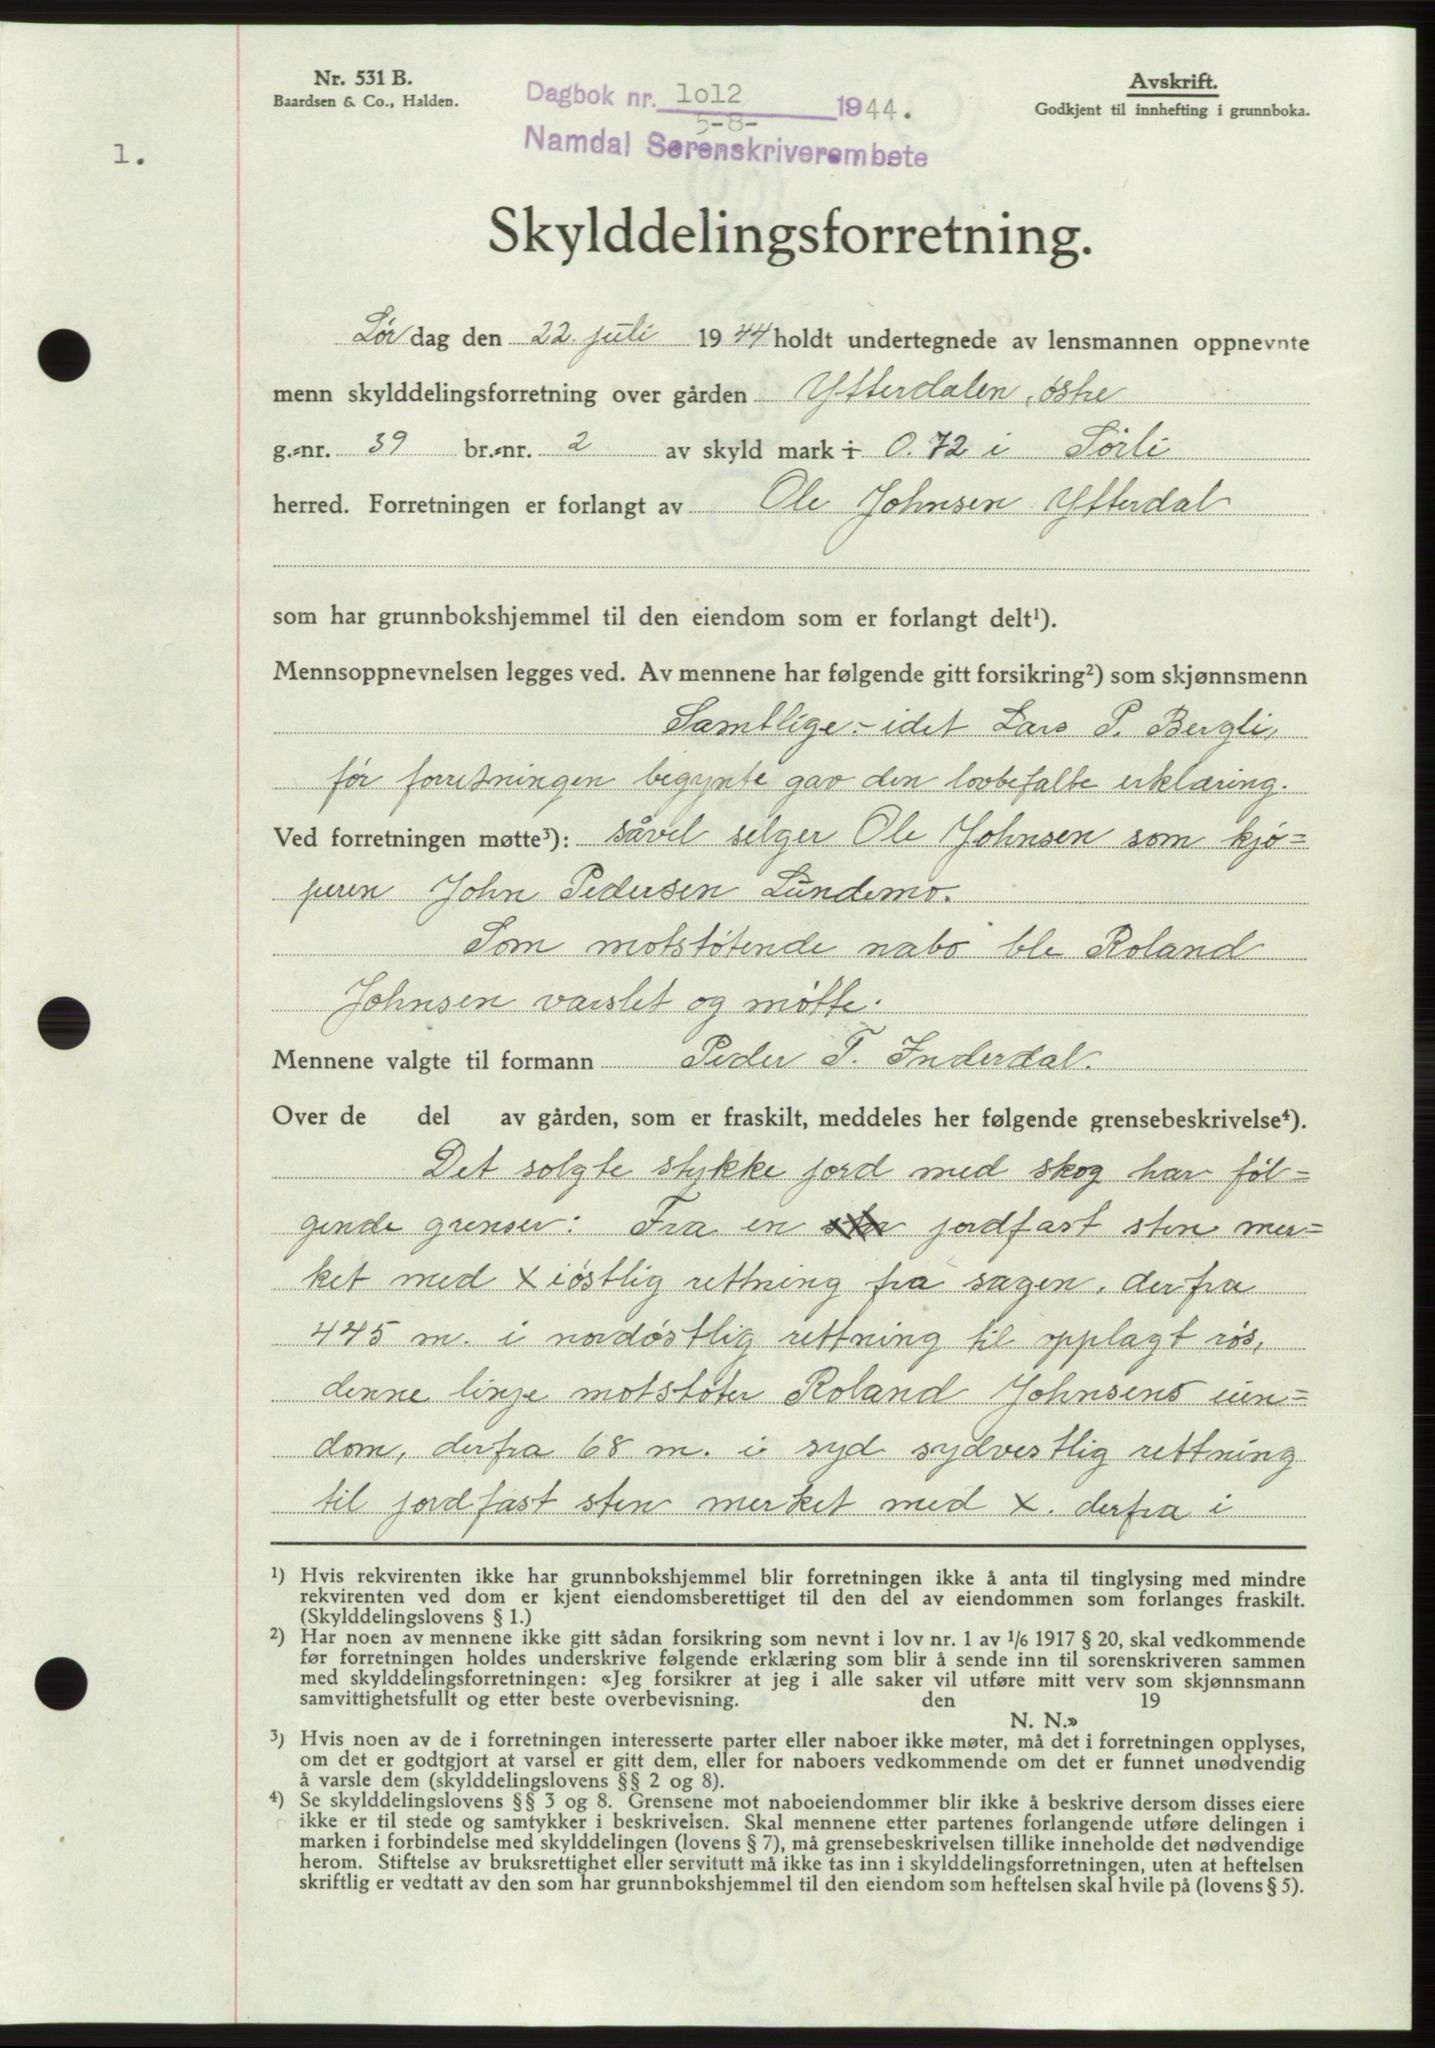 Nr. 531 B.
Baardsen & Co., Halden.
Dagbok nr. 1012 1944.
5-8-
Namdal Sorenskriverembete
Avskrift.
Godkjent til innhefting i grunnboka.
1.
Skylddelingsforretning.
Lør dag den 22. juli 1944 holdt undertegnede av lensmannen oppnevnte
menn skylddelingsforretning over gården Ytterdalen, østre
g.-nr. 39 br.-nr. 2 av skyld mark i 0.72 i Sørli
herred. Forretningen er forlangt av Ole Johnsen Ytterdal
som har grunnbokshjemmel til den eiendom som er forlangt delt¹).
Mennsoppnevnelsen legges ved. Av mennene har følgende gitt forsikring²) som skjønnsmenn
Samtlige - idet Lars P. Bergli,
før forretningen begynte gav den lovbefalte erklæring.
Ved forretningen møtte³): såvel selger Ole Johnsen som kjø=
peren John Pedersen Lundemo.
Som motstøtende nabo ble Roland
Johnsen varslet og møtte.
Mennene valgte til formann Peder T. Inderdal.
Over de del av gården, som er fraskilt, meddeles her følgende grensebeskrivelse⁴).
Det solgte stykke jord med skog har føl=
gende grenser: Fra en jordfast sten mer=
ket med x i østlig rettning fra sagen, derfra
445 m. i nordøstlig rettning til opplagt røs,
denne linje motstøter Roland Johnsens eien=
dom, derfra 68 m. i syd sydvestlig rettning
til jordfast sten merket med x. derfra i
¹) Hvis rekvirenten ikke har grunnbokshjemmel blir forretningen ikke å anta til tinglysing med mindre
rekvirenten ved dom er kjent eiendomsberettiget til den del av eiendommen som forlanges fraskilt.
(Skylddelingslovens § 1.)
²) Har noen av mennene ikke gitt sådan forsikring som nevnt i lov nr. 1 av 1/6 1917 § 20, skal vedkommende
før forretningen holdes underskrive følgende erklæring som blir å sende inn til sorenskriveren sammen
med skylddelingsforretningen: «Jeg forsikrer at jeg i alle saker vil utføre mitt verv som skjønnsmann
samvittighetsfullt og etter beste overbevisning. den 19
N. N.»
³) Hvis noen av de i forretningen interesserte parter eller naboer ikke møter, må det i forretningen opplyses,
om det er godtgjort at varsel er gitt dem, eller for naboers vedkommende om det er funnet unødvendig
å varsle dem (skylddelingslovens §§ 2 og 8).
⁴) Se skylddelingslovens §§ 3 og 8. Grensene mot naboeiendommer blir ikke å beskrive dersom disses eiere
ikke er til stede og samtykker i beskrivelsen. Skal mennene etter partenes forlangende utføre delingen i
marken i forbindelse med skylddelingen (lovens § 7), må grensebeskrivelsen tillike inneholde det nødvendige
herom. Stiftelse av bruksrettighet eller servitutt må ikke tas inn i skylddelingsforretningen, uten at heftelsen
skriftlig er vedtatt av den som har grunnbokshjemmel til den eiendom som heftelsen skal hvile på (lovens § 5).